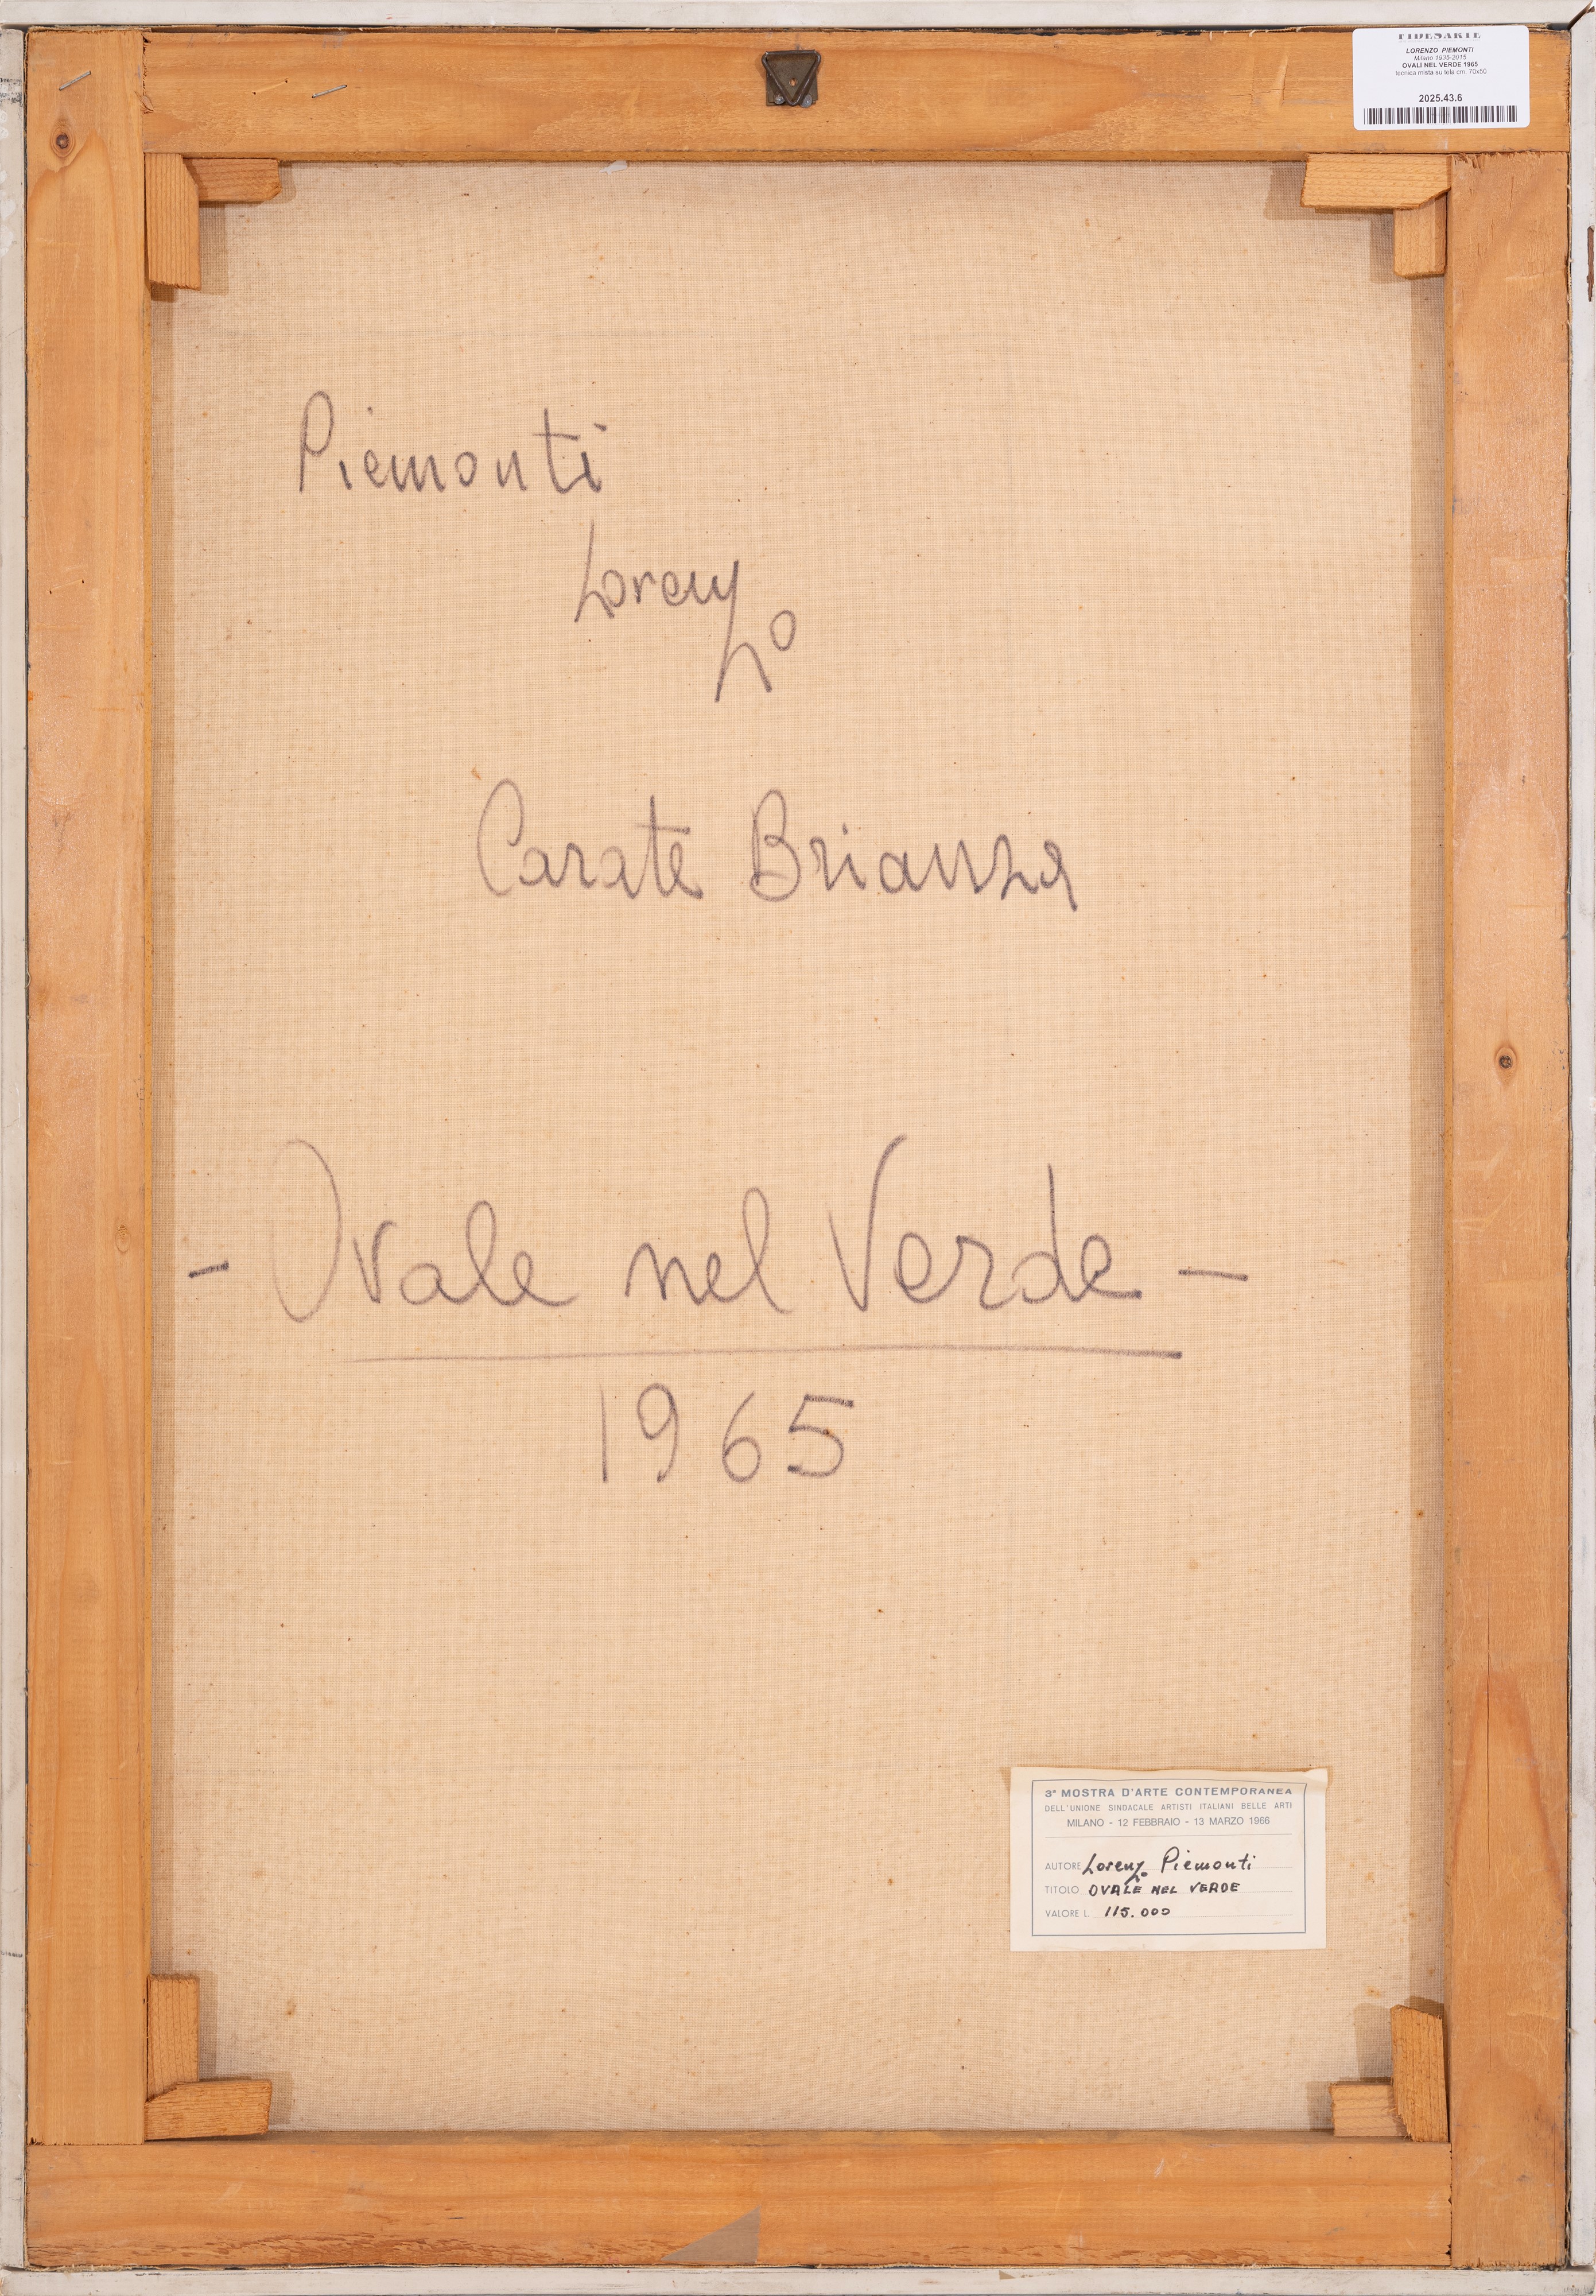 FIDESARTE
LORENZO PIEMONTI
Milano 1935-2015
OVALI NEL VERDE 1965
tecnica mista su tela cm. 70x50
2025.43.6
Piemonti
Lorenzo
Carate Brianza
- Ovale nel Verde -
1965
3ª MOSTRA D'ARTE CONTEMPORANEA
DELL'UNIONE SINDACALE ARTISTI ITALIANI BELLE ARTI
MILANO - 12 FEBBRAIO - 13 MARZO 1966
AUTORE Lorenzo Piemonti
TITOLO OVALE NEL VERDE
VALORE L. 115.000